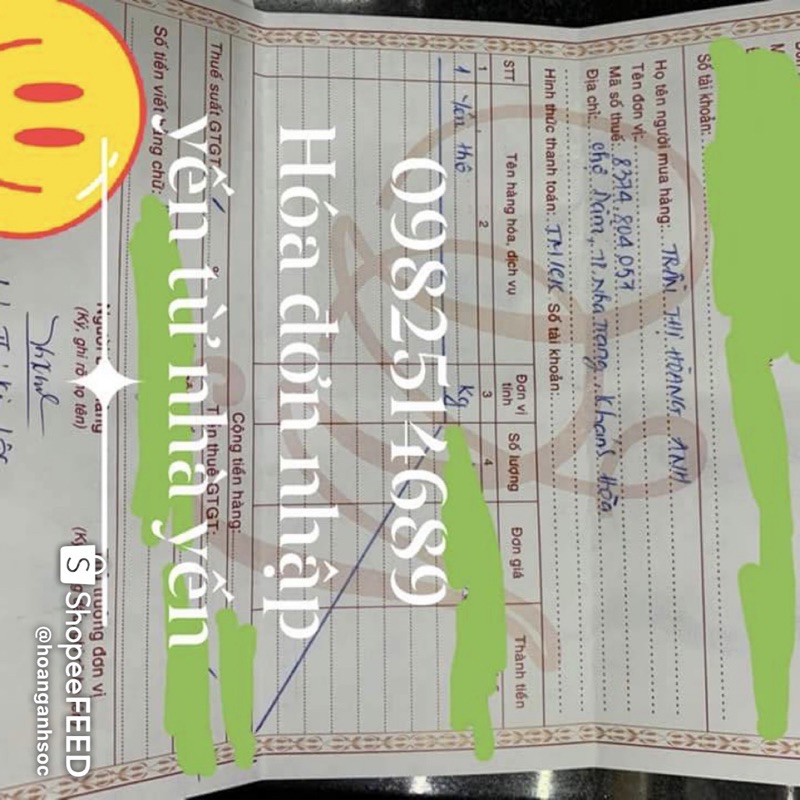 Số tài khoản:
Họ tên người mua hàng: TRẦN THỊ HOÀNG ANH
Tên đơn vị:
Mã số thuế: 8374.804.057
Địa chỉ: chợ Đầm, TP. Nha Trang, Khánh Hòa
Hình thức thanh toán: TM/CK Số tài khoản:
STT Tên hàng hóa, dịch vụ Đơn vị tính Số lượng Đơn giá Thành tiền
1 2 3 4
1 yến thô kg
Cộng tiền hàng:
Thuế suất GTGT: Tiền thuế GTGT:
Số tiền viết bằng chữ:
Thủ trưởng đơn vị
(Ký, ghi rõ họ tên)
0982514689
Hóa đơn nhập
yến từ nhà yến
S ShopeeFEED
@hoanganhsoc